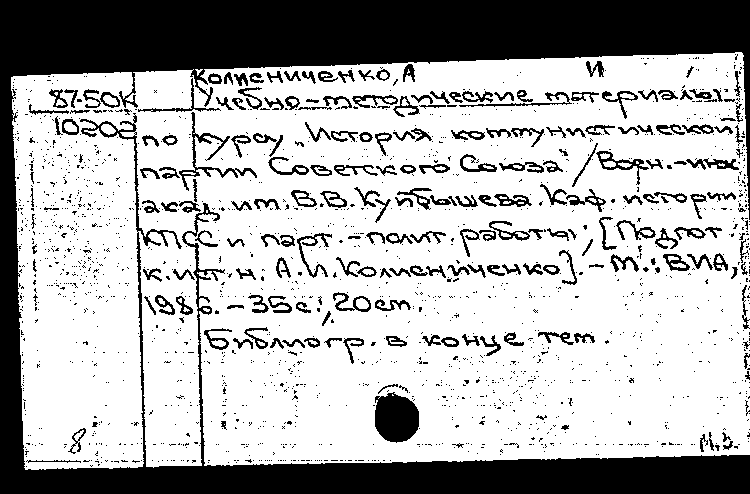 Колисниченко, А И
87-50К Учебно-методические материалы
10202 по курсу „История коммунистической
партии Советского Союза" / Воен.-инж
акад. им. В.В. Куйбышева. Каф. истории
КПСС и парт.-полит. работы; [Подгот.
к.ист.н. А.И. Колисниченко]. – М.: ВИА,
1986. – 35 с.; 20 см.
Библиогр. в конце тем.
8